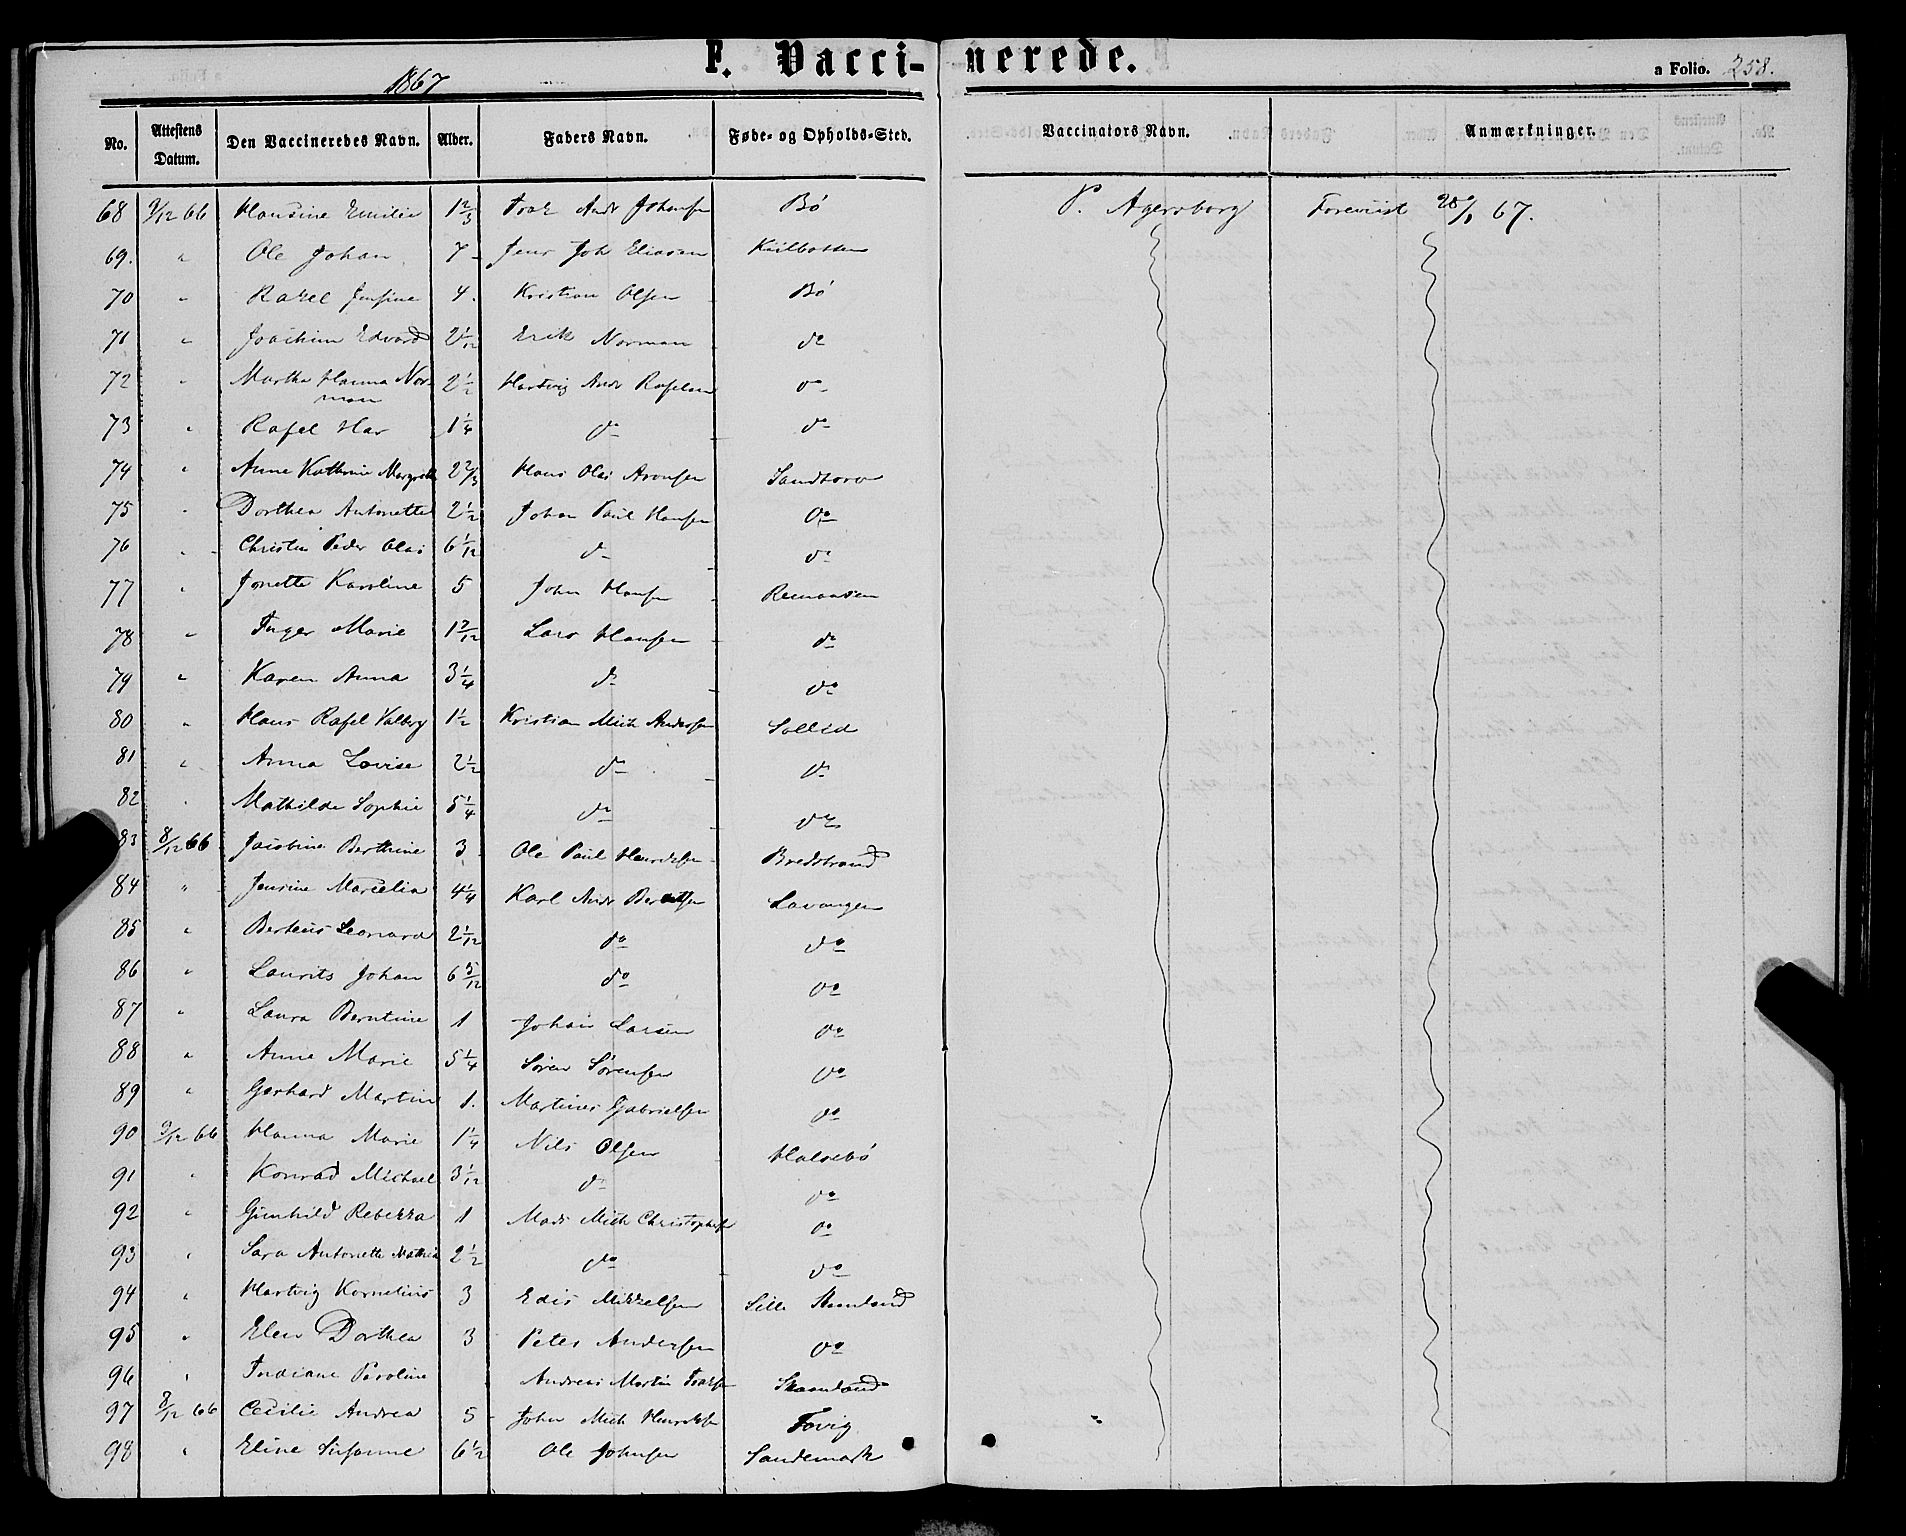 F. Vaccinerede.
1867
a Folio. 258.
No. Attestens Datum. Den Vaccineredes Navn. Alder. Faders Navn. Føde- og Opholds-Sted. Vaccinators Navn. Anmærkninger.
68 9/12 66 Hansine Emilie 1 2/3 Isak Andr Johansen Bø P. Agersborg Foreviist 28/1 67.
69. " Ole Johan 7 Jens Joh Eliasen Kiilbotten
70 " Rakel Jensine 4. Kristian Olsen Bø
71 " Joachim Edvard 2 1/12 Erik Norman do
72 " Martha Hanna Nor-
man 2 1/2 Hartvig Andr Rafelsen do
73 " Rafel Har 1 1/4 do do
74 " Anne Kathrine Margrethe 2 2/3 Hans Olai Aronsen Sandtorv
75 " Dorthea Antonette 2 1/2 Johan Paul Hansen do
76 " Christen Peder Olai 6 1/12 do do
77 " Jonette Karoline 5 John Hansen Remaasen
78 " Inger Marie 1 7/12 Lars Hansen do
79 " Karen Anna 3 1/4 do do
80 " Hans Rafel Valberg 1 1/2 Kristian Mich Andersen Sollid
81 " Anna Lovise 2 1/2 do do
82 " Mathilde Sophie 5 1/4 do do
83 8/12 66 Jacobine Berthine 3 Ole Paul Henriksen Bredstrand
84 " Jensine Marcelia 4 1/4 Karl Andr Berntsen Lavangen
85 " Berteus Leonard 2 1/12 do do
86 " Laurits Johan 6 5/12 do do
87 " Laura Berntine 1 Johan Larsen do
88 " Anne Marie 5 1/4 Søren Sørensen do
89 " Gerhard Martin 1. Martines Gabrielsen do
90 9/12 66 Hanna Marie 1 1/4 Nils Olsen Halsebø
91 " Konrad Michael 3 1/12 do do
92 " Gunhild Rebekka 1 Mads Mich Christophersen do
93 " Sara Antonette Mathea 2 1/2 do do
94 " Hartvig Kornelius 3 Edis Mikkelsen Lille Skaanland
95 " Elen Dorthea 3 Peter Andersen do
96 " Indiane Paroline Andreas Martin Isaksen Skaanland
97 8/12 66 Cecilie Andrea 5 John Mich Henriksen Fovig
98 " Eline Susanne 6 1/2 Ole Johnsen Sandemark